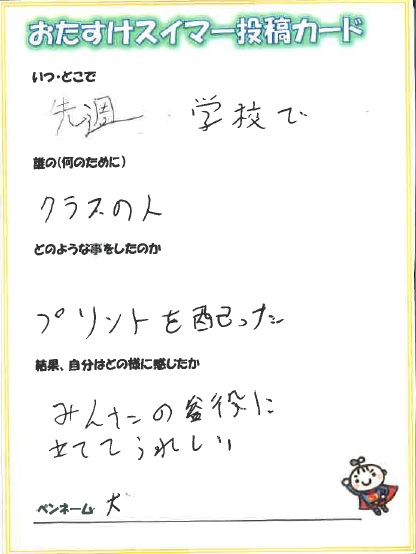 おたすけスイマー投稿カード
いつ・どこで
先週 学校で
誰の(何のために)
クラスの人
どのような事をしたのか
プリントを配った
結果、自分はどの様に感じたか
みんなの役に
立ててうれしい
ペンネーム 犬